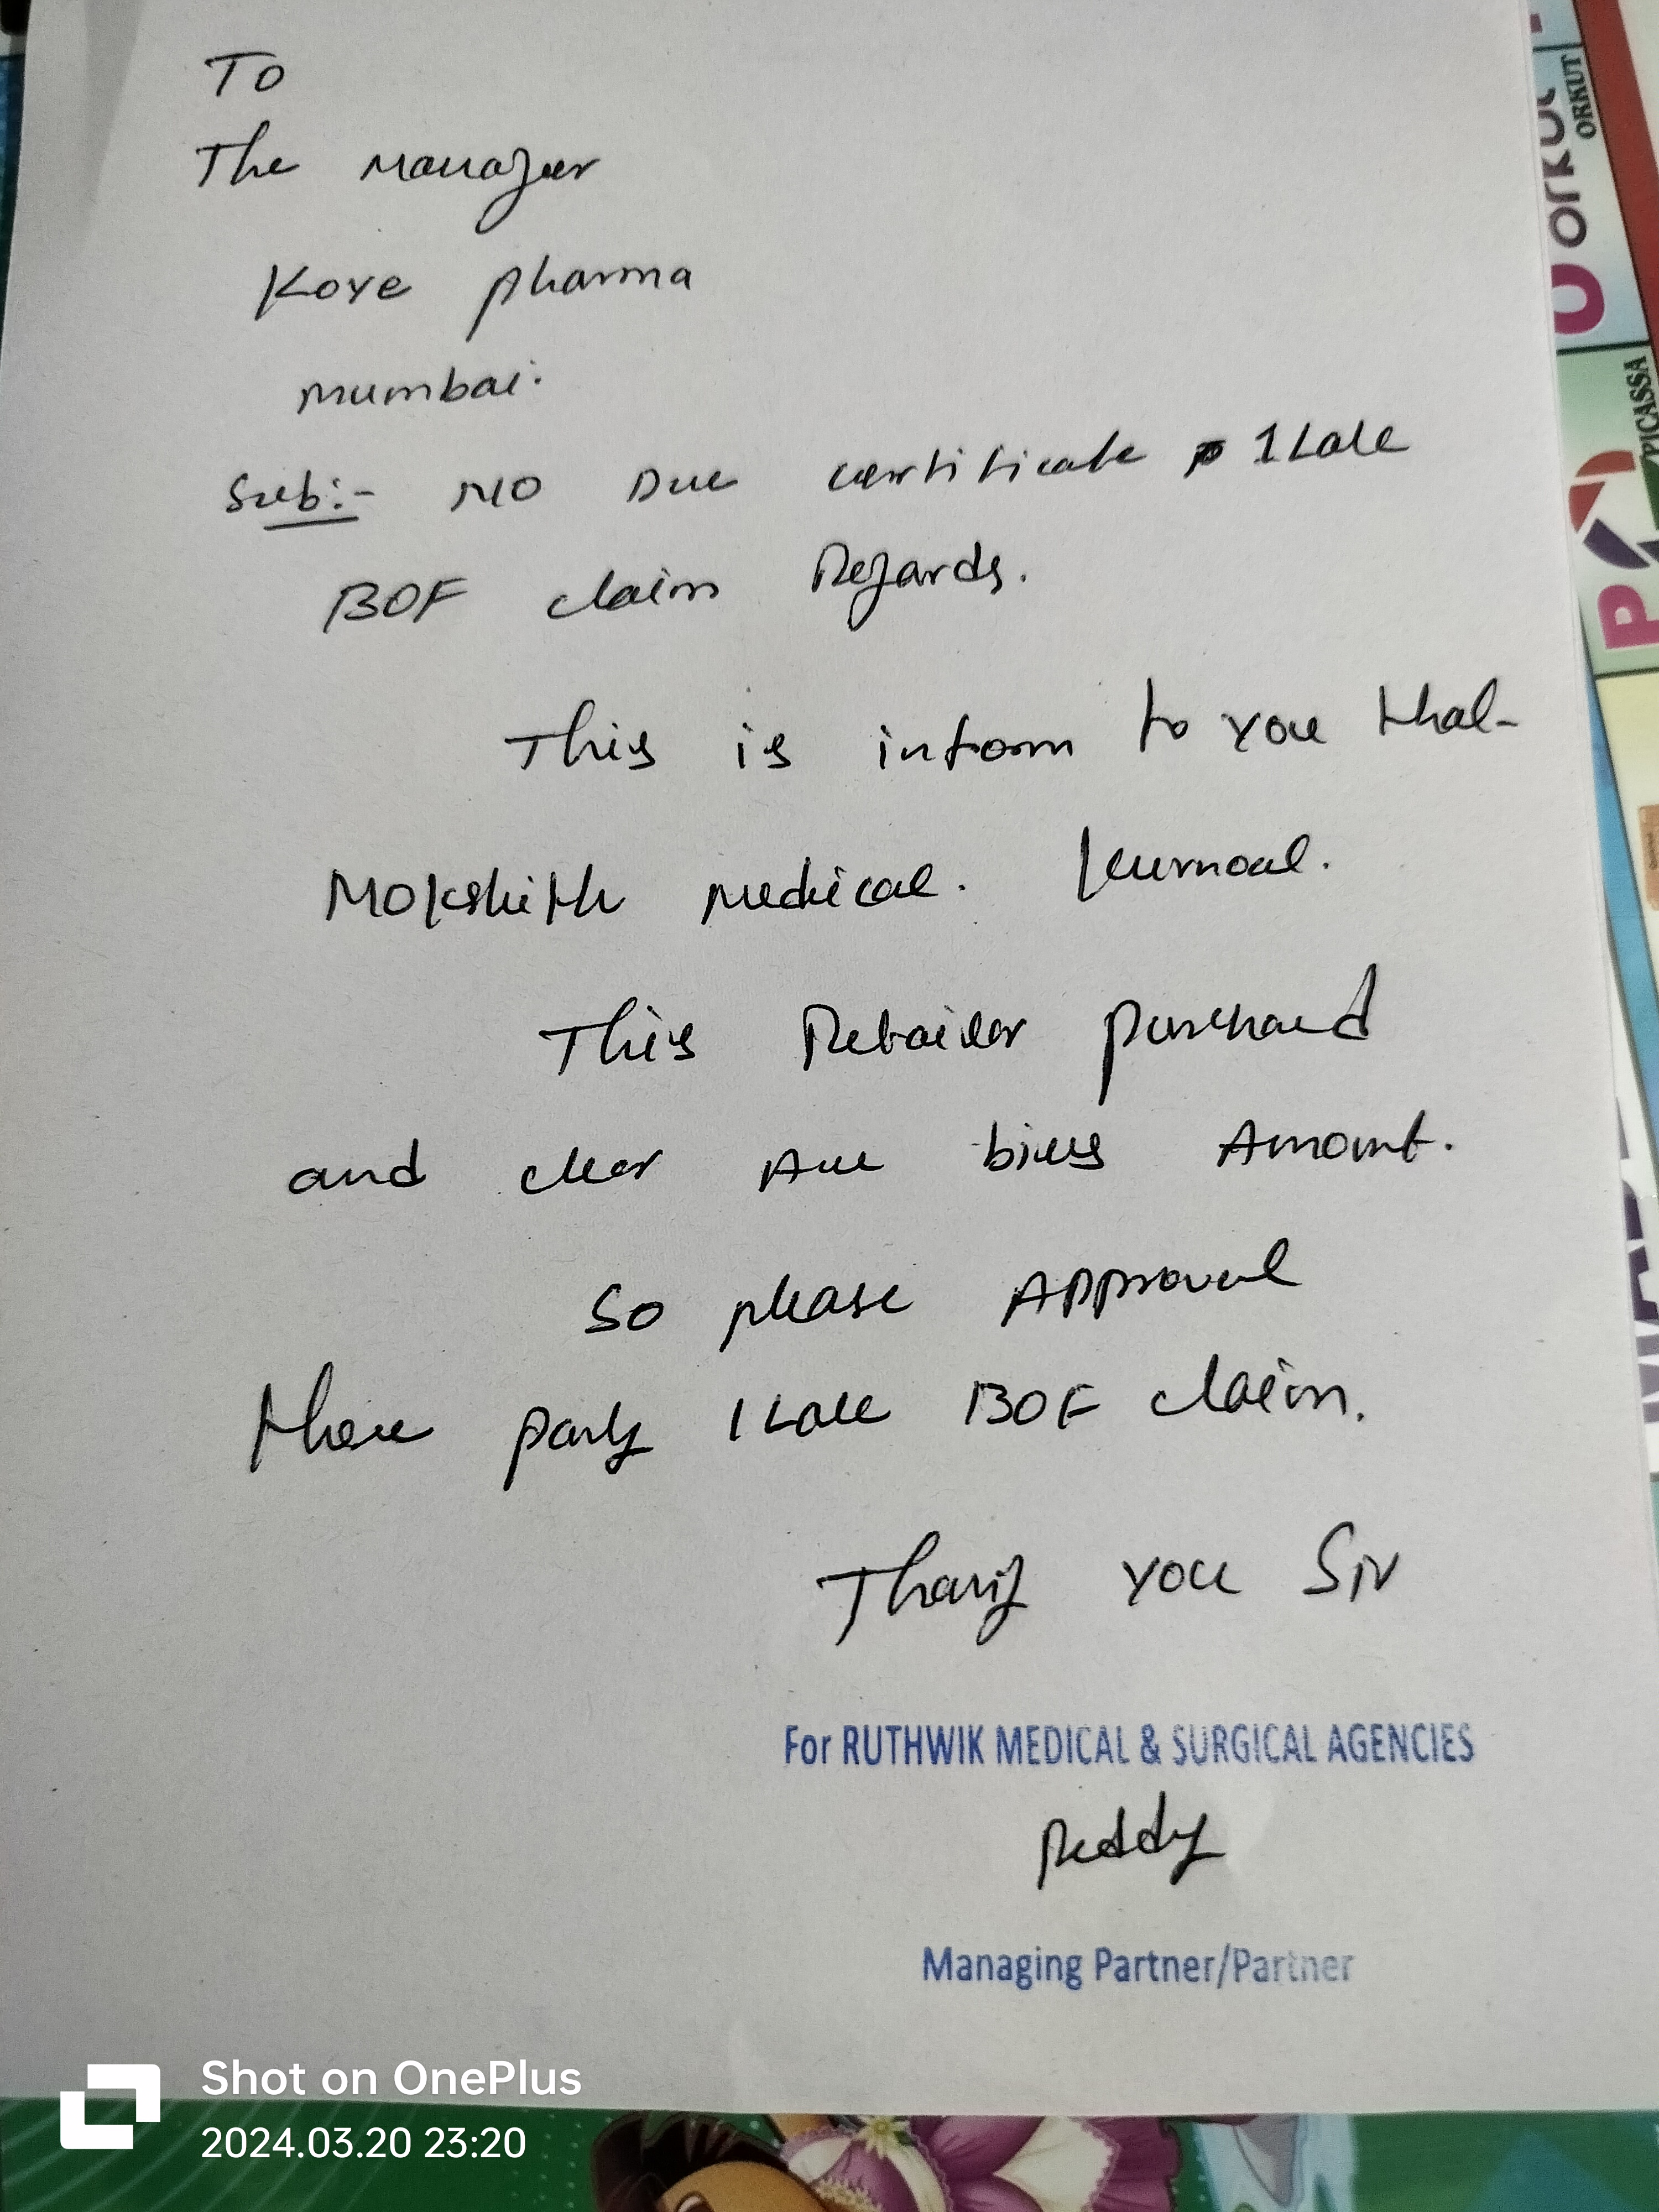 To
The Manager
Kore pharma
Mumbai.
Sub:- NO Due certificate 1 Lak
BOF claim Regards.
This is inform to you that
Mokshith Medical. Kurnool.
This Retailer purchased
and clear All bills Amount.
So please Approval
there party 1 Lak BOF claim.
Thank you Sir
For RUTHWIK MEDICAL & SURGICAL AGENCIES
Reddy
Managing Partner/Partner
Shot on OnePlus
2024.03.20 23:20
ORKUT
ORKUT
PICASSA